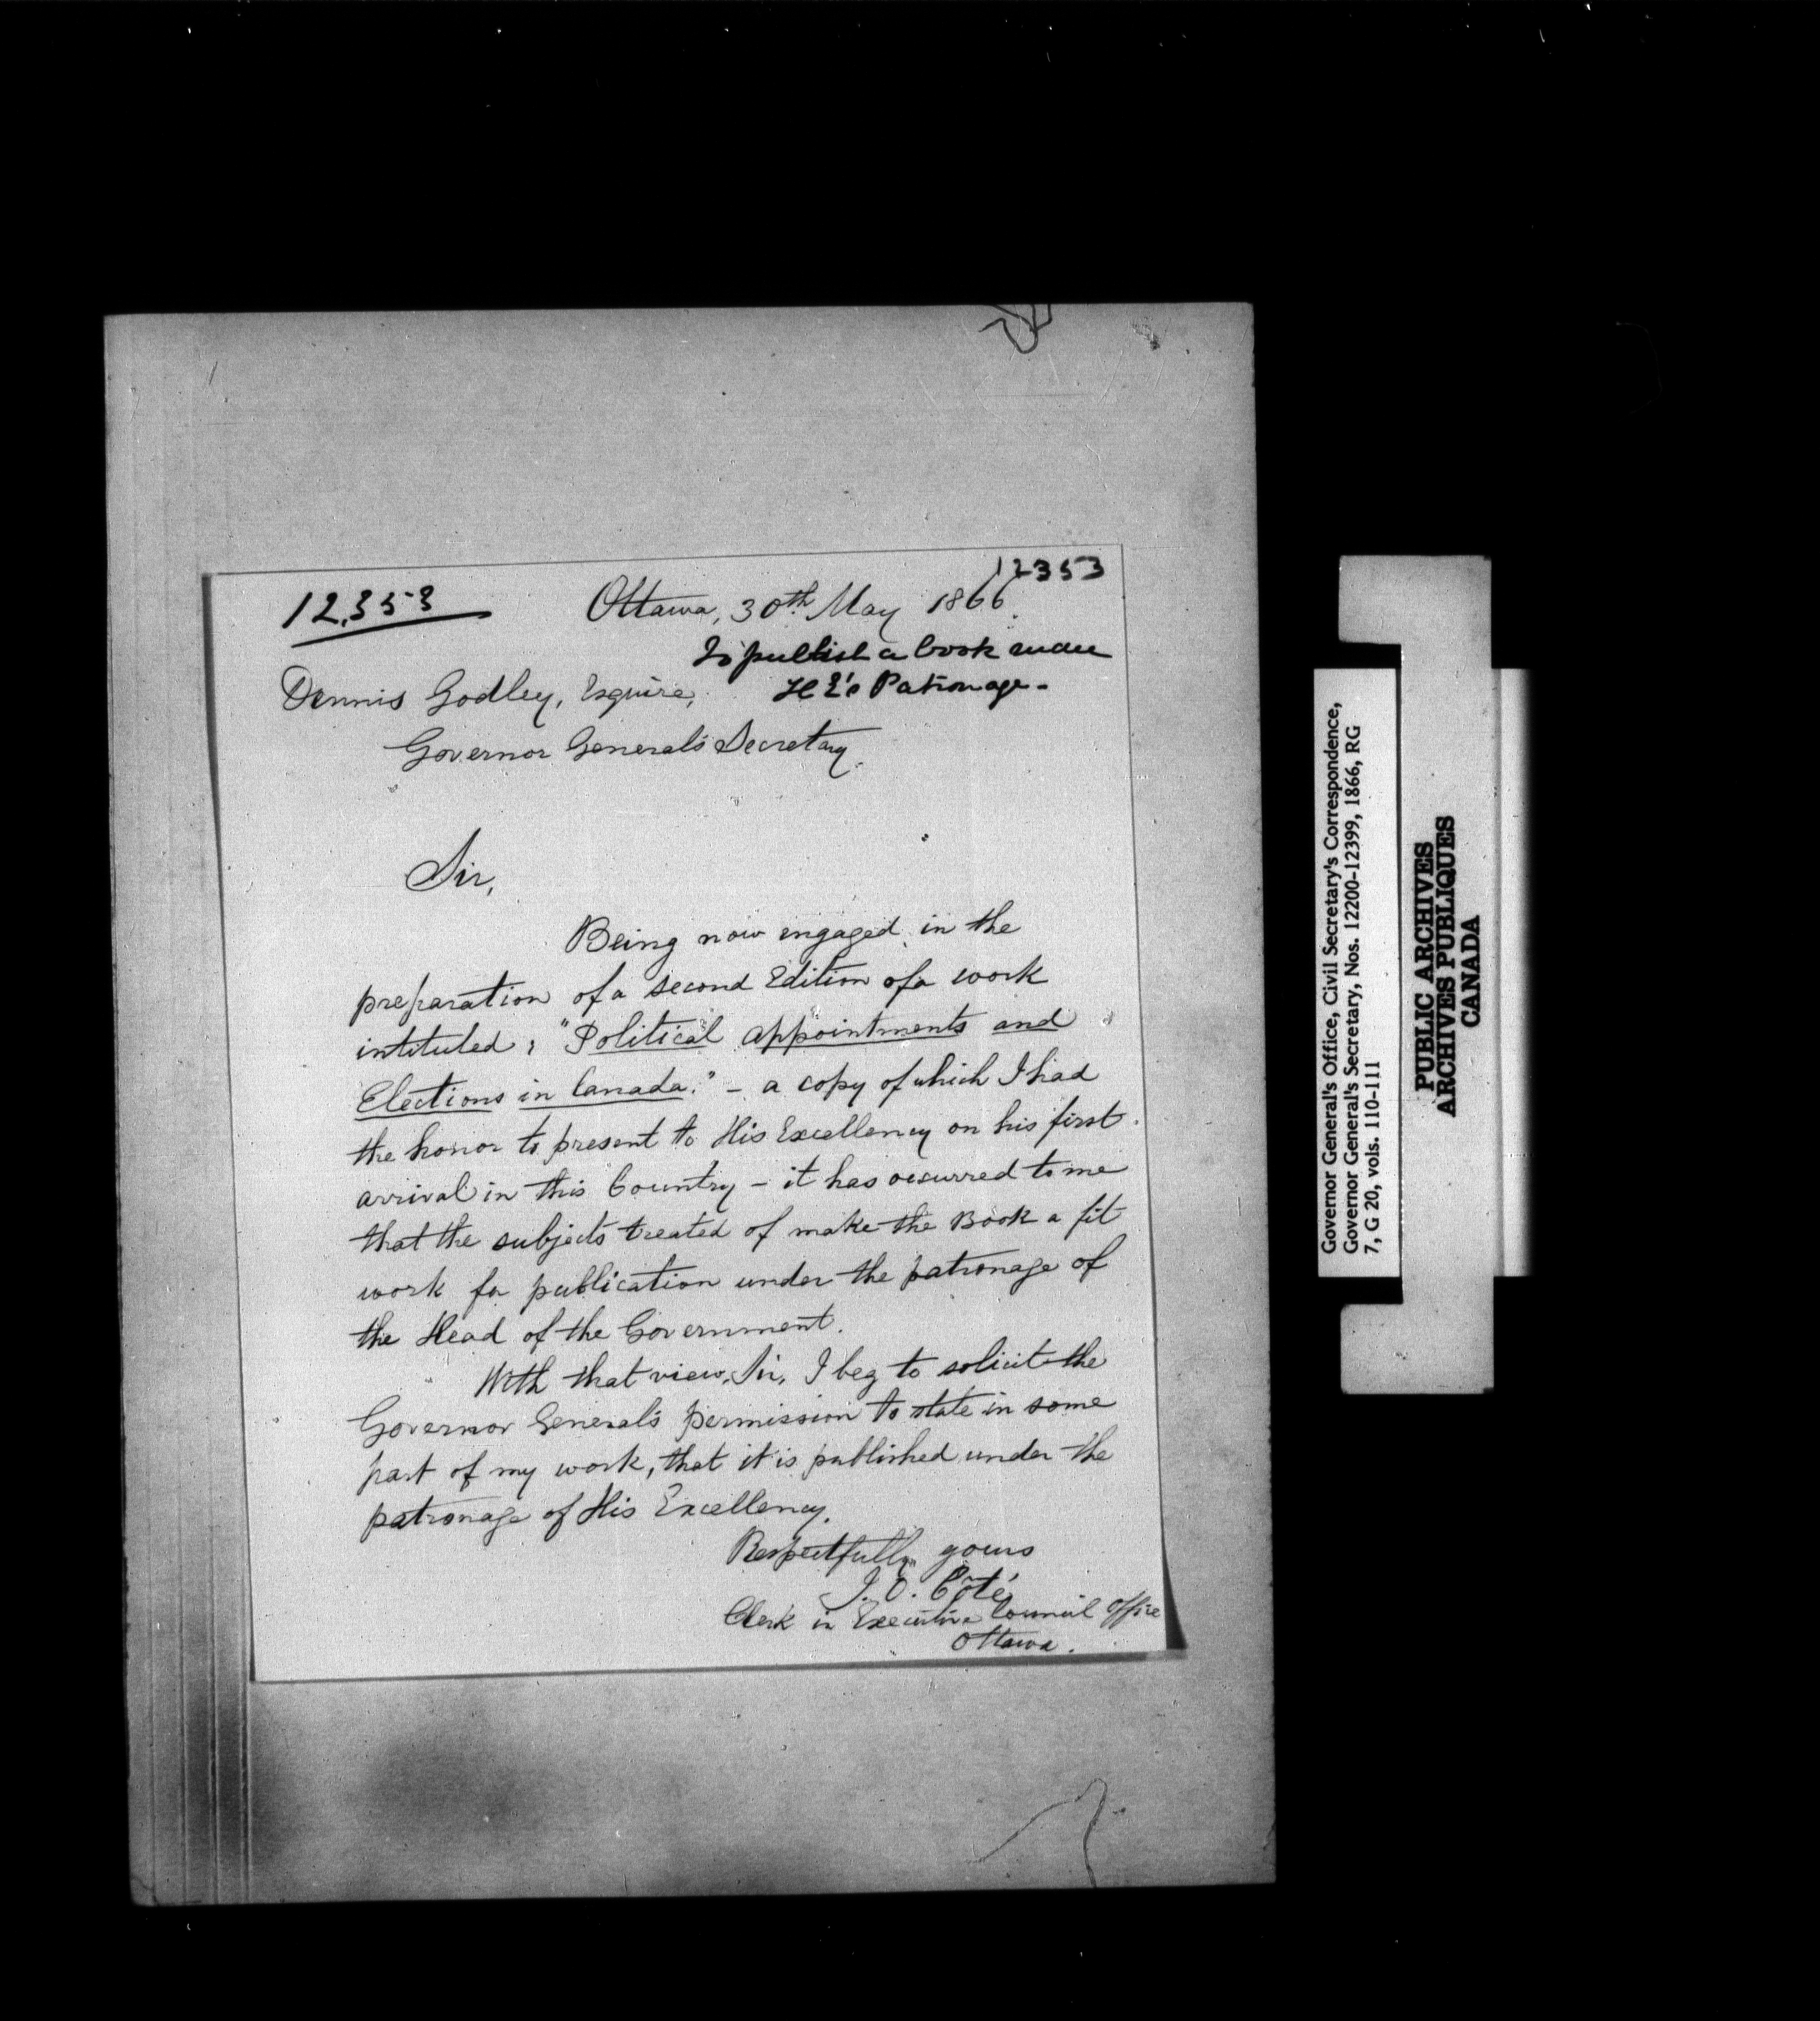 12353
12,353
Ottawa, 30th May 1866.
To publish a book under
H E's Patronage -
Dennis Godley, Esquire,
Governor General's Secretary.
Sir,
Being now engaged in the
preparation of a second Edition of a work
intituled: "Political appointments and
Elections in Canada." - a copy of which I had
the honor to present to His Excellency on his first
arrival in this Country - it has occurred to me
that the subjects treated of make the Book a fit
work for publication under the patronage of
the Head of the Government.
With that view, Sir, I beg to solicit the
Governor General's permission to state in some
part of my work, that it is published under the
patronage of His Excellency.
Respectfully yours
J. O. Côté
Clerk in Executive Council Office
Ottawa.
Governor General's Office, Civil Secretary's Correspondence,
Governor General's Secretary, Nos. 12200-12399, 1866, RG
7, G 20, vols. 110-111
PUBLIC ARCHIVES
ARCHIVES PUBLIQUES
CANADA